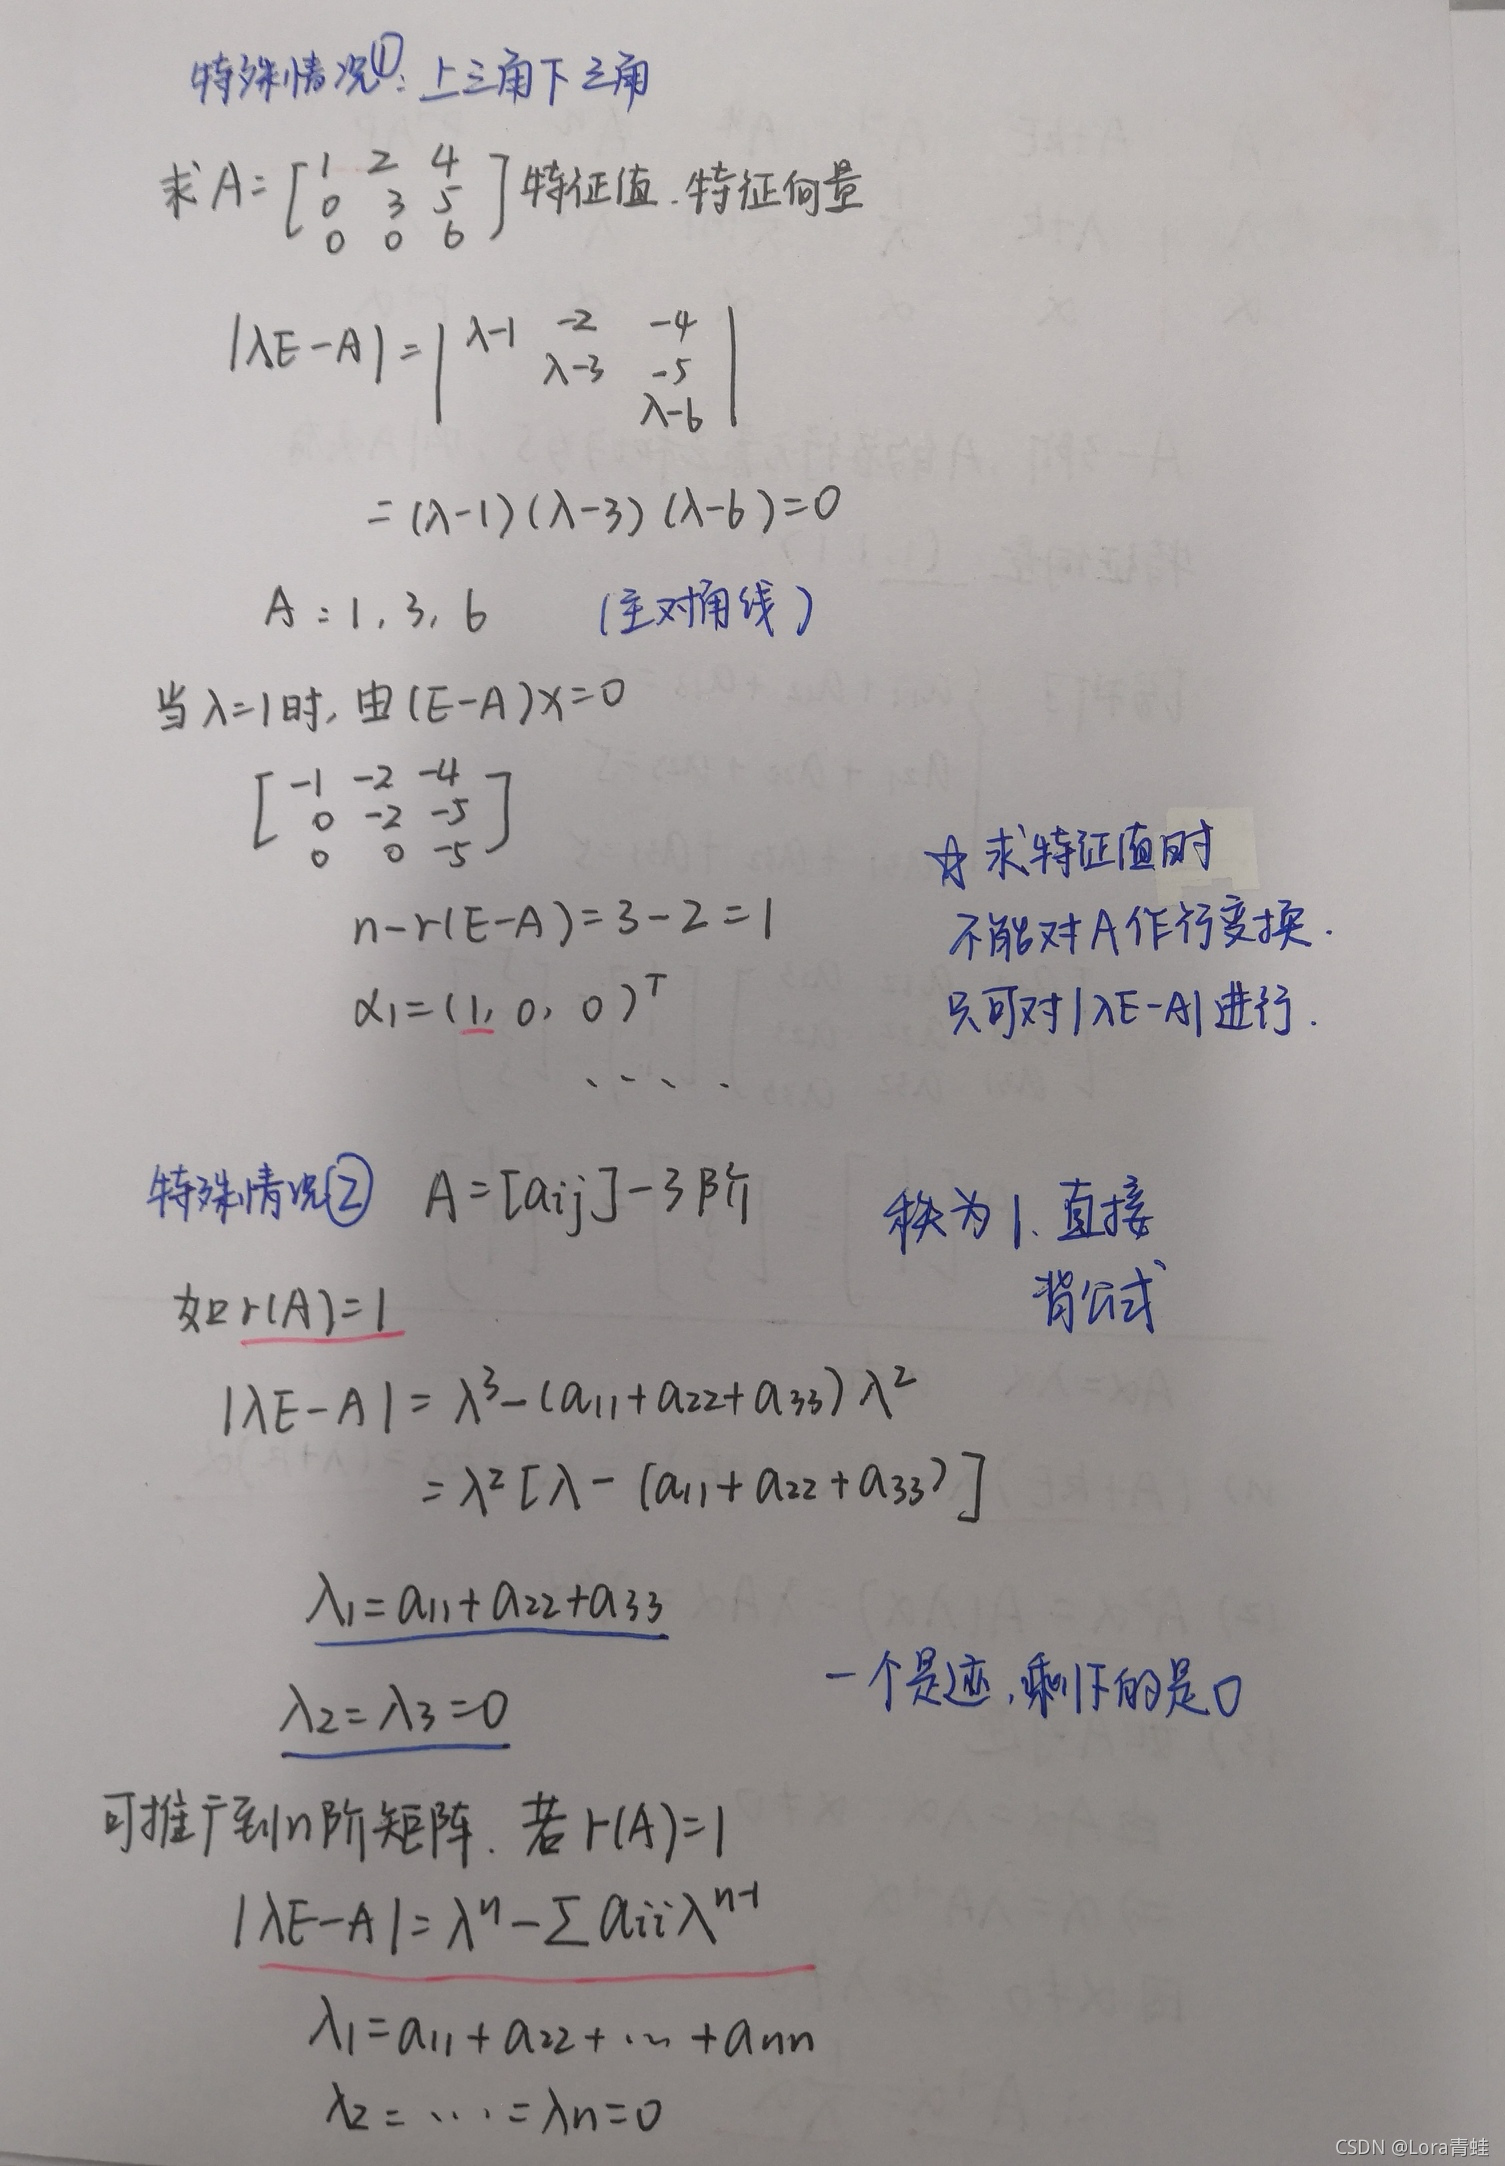 特殊情况①：上三角下三角
求A=[1 2 4
0 3 5
0 0 6] 特征值.特征向量
|λE-A|=|λ-1 -2 -4
λ-3 -5
λ-6|
=(λ-1)(λ-3)(λ-6)=0
A:1,3,6 (主对角线)
当λ=1时,由(E-A)x=0
[-1 -2 -4
0 -2 -5
0 0 -5]
☆求特征值时
不能对A作行变换.
只可对|λE-A|进行.
n-r(E-A)=3-2=1
α₁=(1,0,0)ᵀ
....
特殊情况② A=[aij]-3阶
秩为1、直接
背公式
如r(A)=1
|λE-A|=λ³-(a₁₁+a₂₂+a₃₃)λ²
=λ²[λ-(a₁₁+a₂₂+a₃₃)]
λ₁=a₁₁+a₂₂+a₃₃
λ₂=λ₃=0
一个是迹,剩下的是0
可推广到n阶矩阵.若r(A)=1
|λE-A|=λⁿ-∑aiiλⁿ⁻¹
λ₁=a₁₁+a₂₂+...+ann
λ₂=...=λn=0
CSDN @Lora青蛙